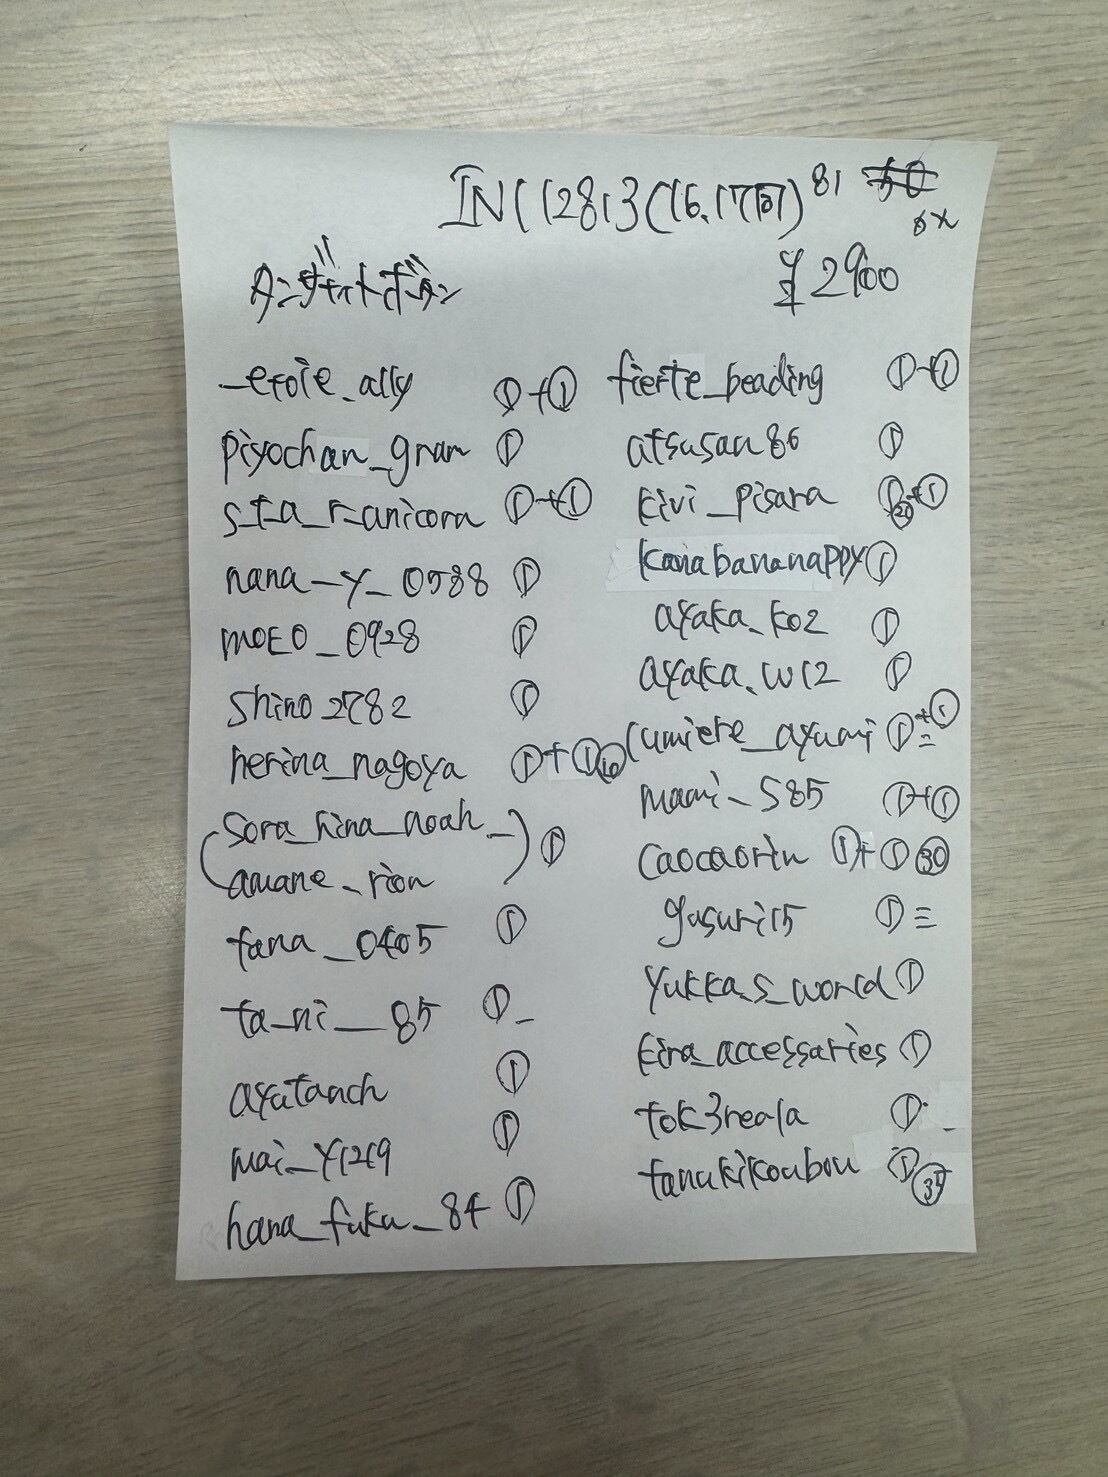 81
¥2900
_etoie_ally ①+①
piyochan_gram ①
s_t_a_r_anicorn ①+①
nana_y_0588 ①
moeo_0928 ①
shino2782 ①
herina_nagoya ①+①⑩
(sora_hina_noah_
amane_rion) ①
fana_0405 ①
ta_ni__85 ①
ayatanch ①
mai_y1219 ①
hana_fuku_84 ①
fierte_beading ①+①
atsusan86 ①
kivi_pisara ①⑳+①
kanabananappy ①
ayaka_ko2 ①
ayaka.w12 ①
lumiere_ayumi ①+①
mami_585 ①+①
caocaorin ①+①㉚
yusuri15 ①
yukka.s_world ①
kira_accessaries ①
tok3reala ①
tanukikoubou ①